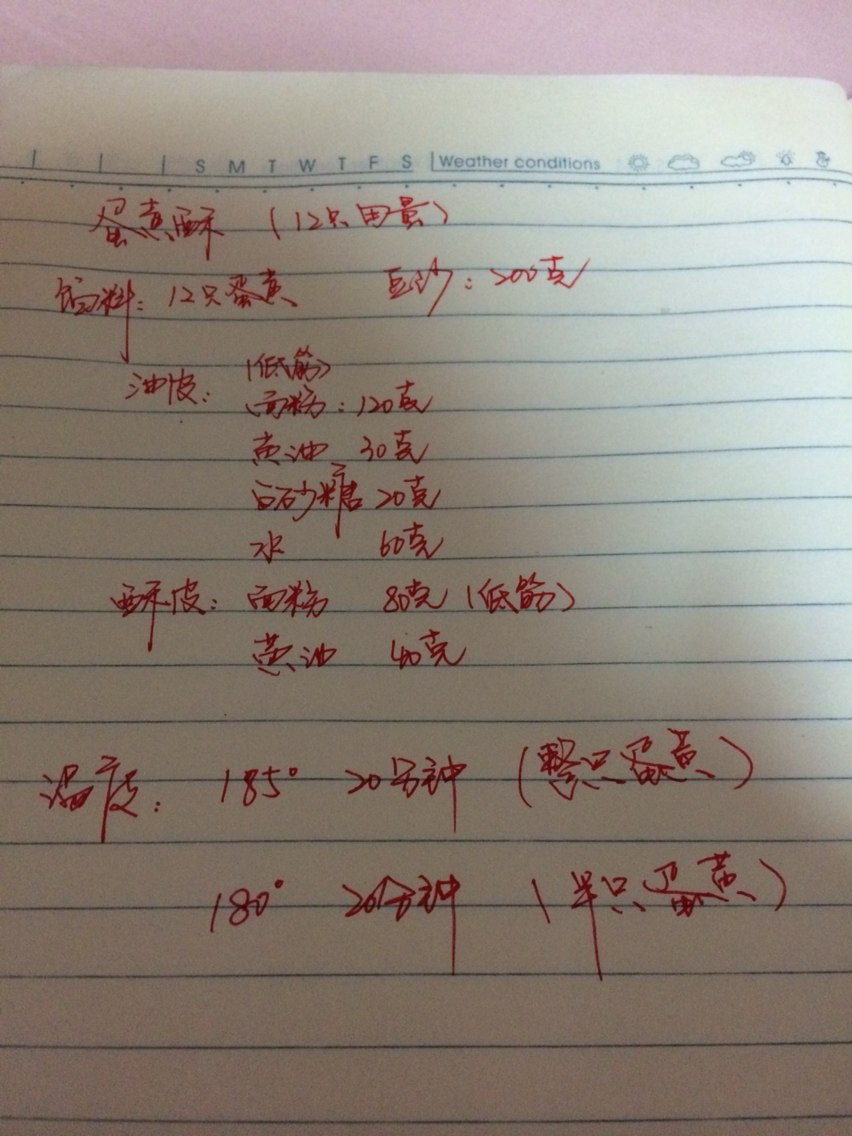 S M T W T F S Weather conditions
蛋黄酥 (12只用量)
馅料: 12只蛋黄 豆沙: 200克
(低筋)
油皮: 面粉: 120克
黄油 30克
白砂糖 20克
水 60克
酥皮: 面粉 80克 (低筋)
黄油 40克
温度: 185° 20分钟 (整只蛋黄)
180° 20分钟 (半只蛋黄)